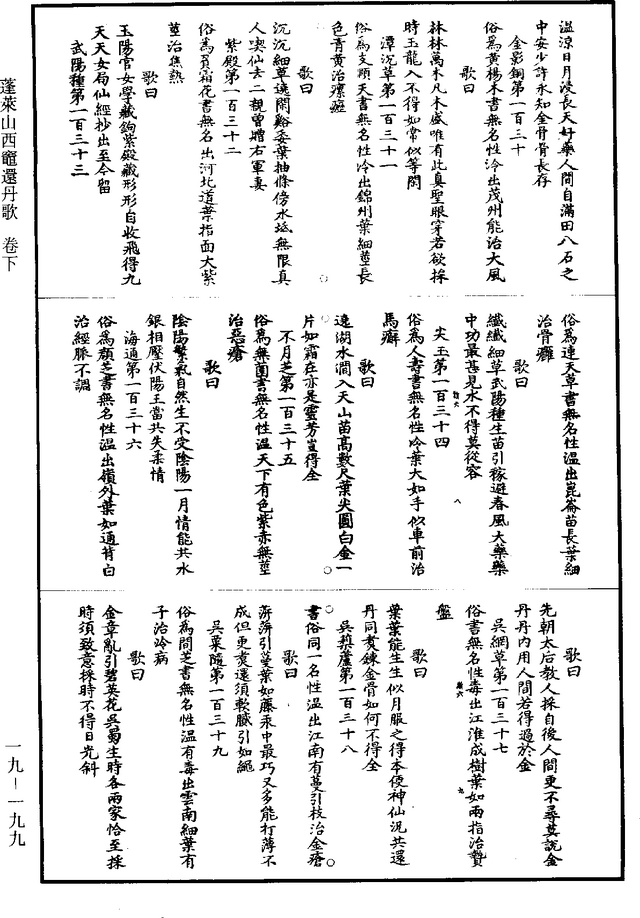 溫涼日月浸長天好藥人間自滿田八石之
中安少許永知金骨骨長存
金影銅第一百三十
俗爲黃楊木書無名性冷出茂州能治大風
歌曰
林林萬木凡木盛唯有此真聖眼穿若欲採
時玉龍入不得如常似等閑
潭沉草第一百三十一
俗爲支顆天書無名性冷出錦州葉細莖長
色青黃治瘰癧
歌曰
沉沉細草遶間谿委葉抽條傍水坻無限真
人喫仙去二親曾贈右軍妻
紫殿第一百三十二
俗爲貝霜花書無名出河北道葉指面大紫
莖治焦熱
歌曰
玉陽官女學藏鉤紫殿藏形形自收飛得九
天天女局仙經抄出至今留
武陽種第一百三十三
俗爲連天草書無名性溫出崑崙苗長葉細
治骨癰
歌曰
纖纖細草武陽種生苗引稼避春風大藥藥
中功最甚見水不得莫從容
尖玉第一百三十四
俗爲人壽書無名性冷葉大如手似車前治
馬癬
歌曰
遶湖水澗入天山苗高數尺葉尖圓白金一
片如霜在亦是靈芳豈得全
不月芝第一百三十五
俗爲無圓書無名性溫天下有色紫赤無莖
治惡瘡
歌曰
陰陽繁氣自然生不受陰陽一月情能共水
銀相壓伏陽王當共失柔情
海通第一百三十六
俗爲顏芝書無名性溫出嶺外葉如通背白
治經脈不調
歌曰
先朝太后教人採自後人間更不尋莫說金
丹丹內用人間若得過於金
吳網草第一百三十七
俗書無名性毒出江淮成樹葉如兩指治蠶
盤
歌曰
葉葉能生生似月服之得本便神仙況共還
丹同煑鍊金骨如何不得全
吳藜蘆第一百三十八
書俗同一名性溫出江南有蔓引枝治金瘡
歌曰
漭漭引蔓葉如藤汞中最巧又多能打薄不
成但更煑還須軟臟引如繩
吳粟隨第一百三十九
俗爲問芝書無名性溫有毒出雲南細葉有
子治冷病
歌曰
金章亂引碧英花吳蜀生時各兩家恰至採
時須致意採時不得日光斜
蓬萊山西竈還丹歌 卷下
一九-一九九